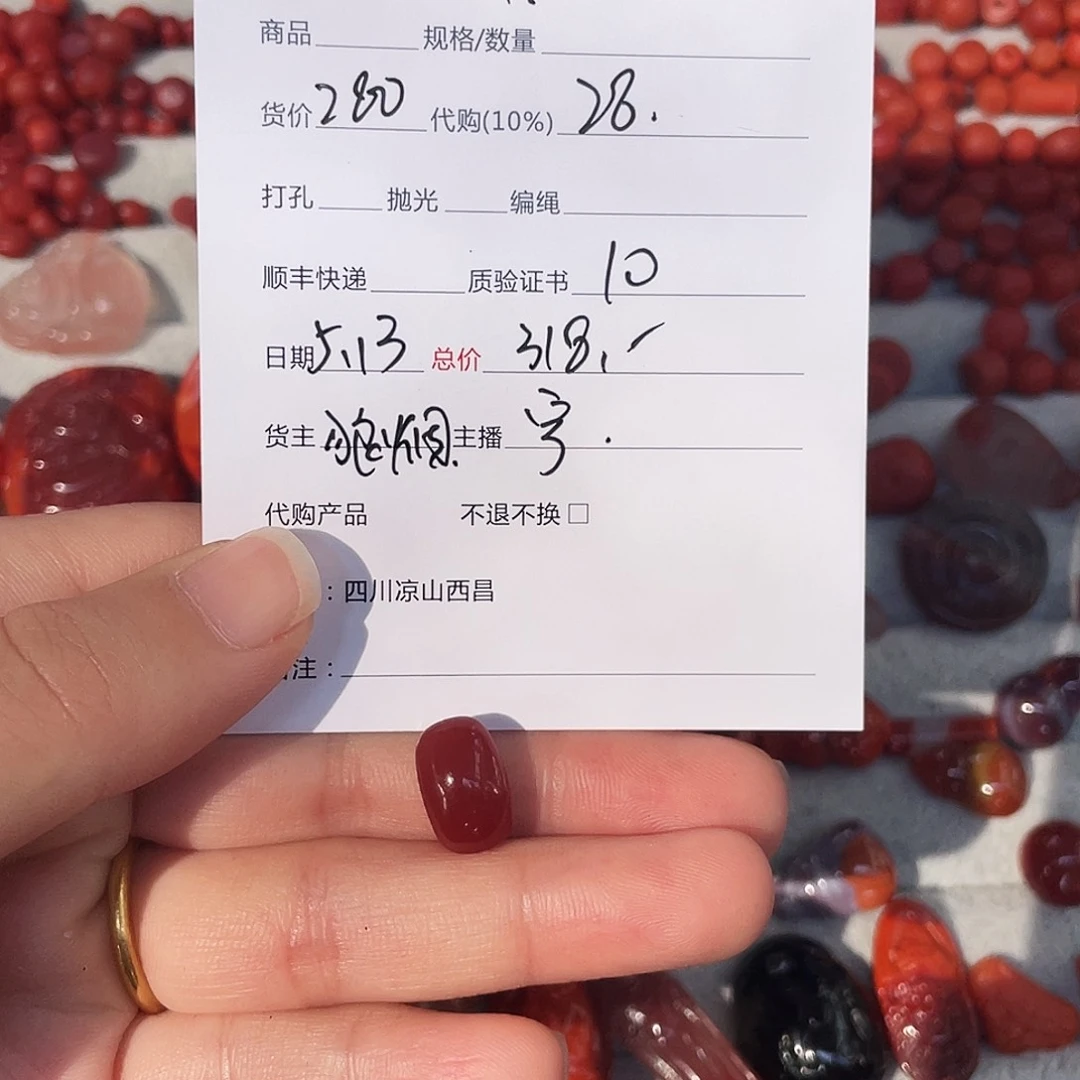 商品 规格/数量
货价 280 代购(10%) 28.
打孔 抛光 编绳
顺丰快递 质验证书 10
日期 5.13 总价 318.
货主 主播 字.
代购产品 不退不换 □
：四川凉山西昌
注：